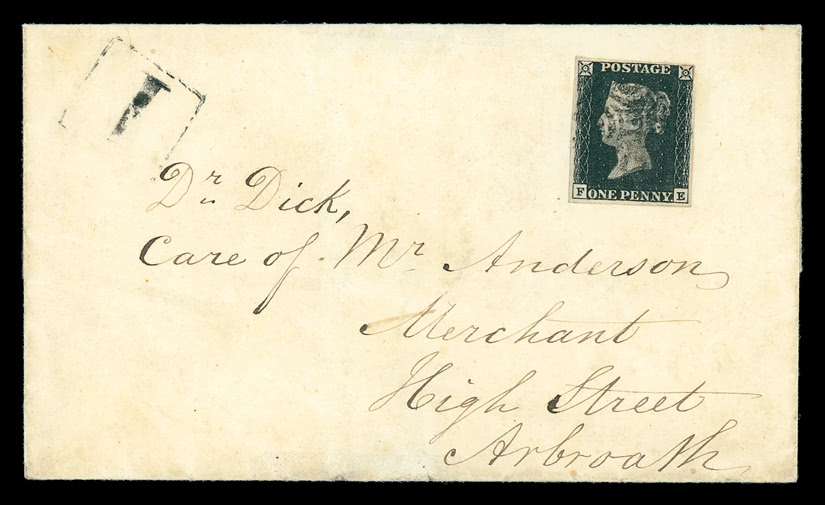 1
POSTAGE
F ONE PENNY E
Dr Dick,
Care of Mr Anderson
Merchant
High Street
Arbroath